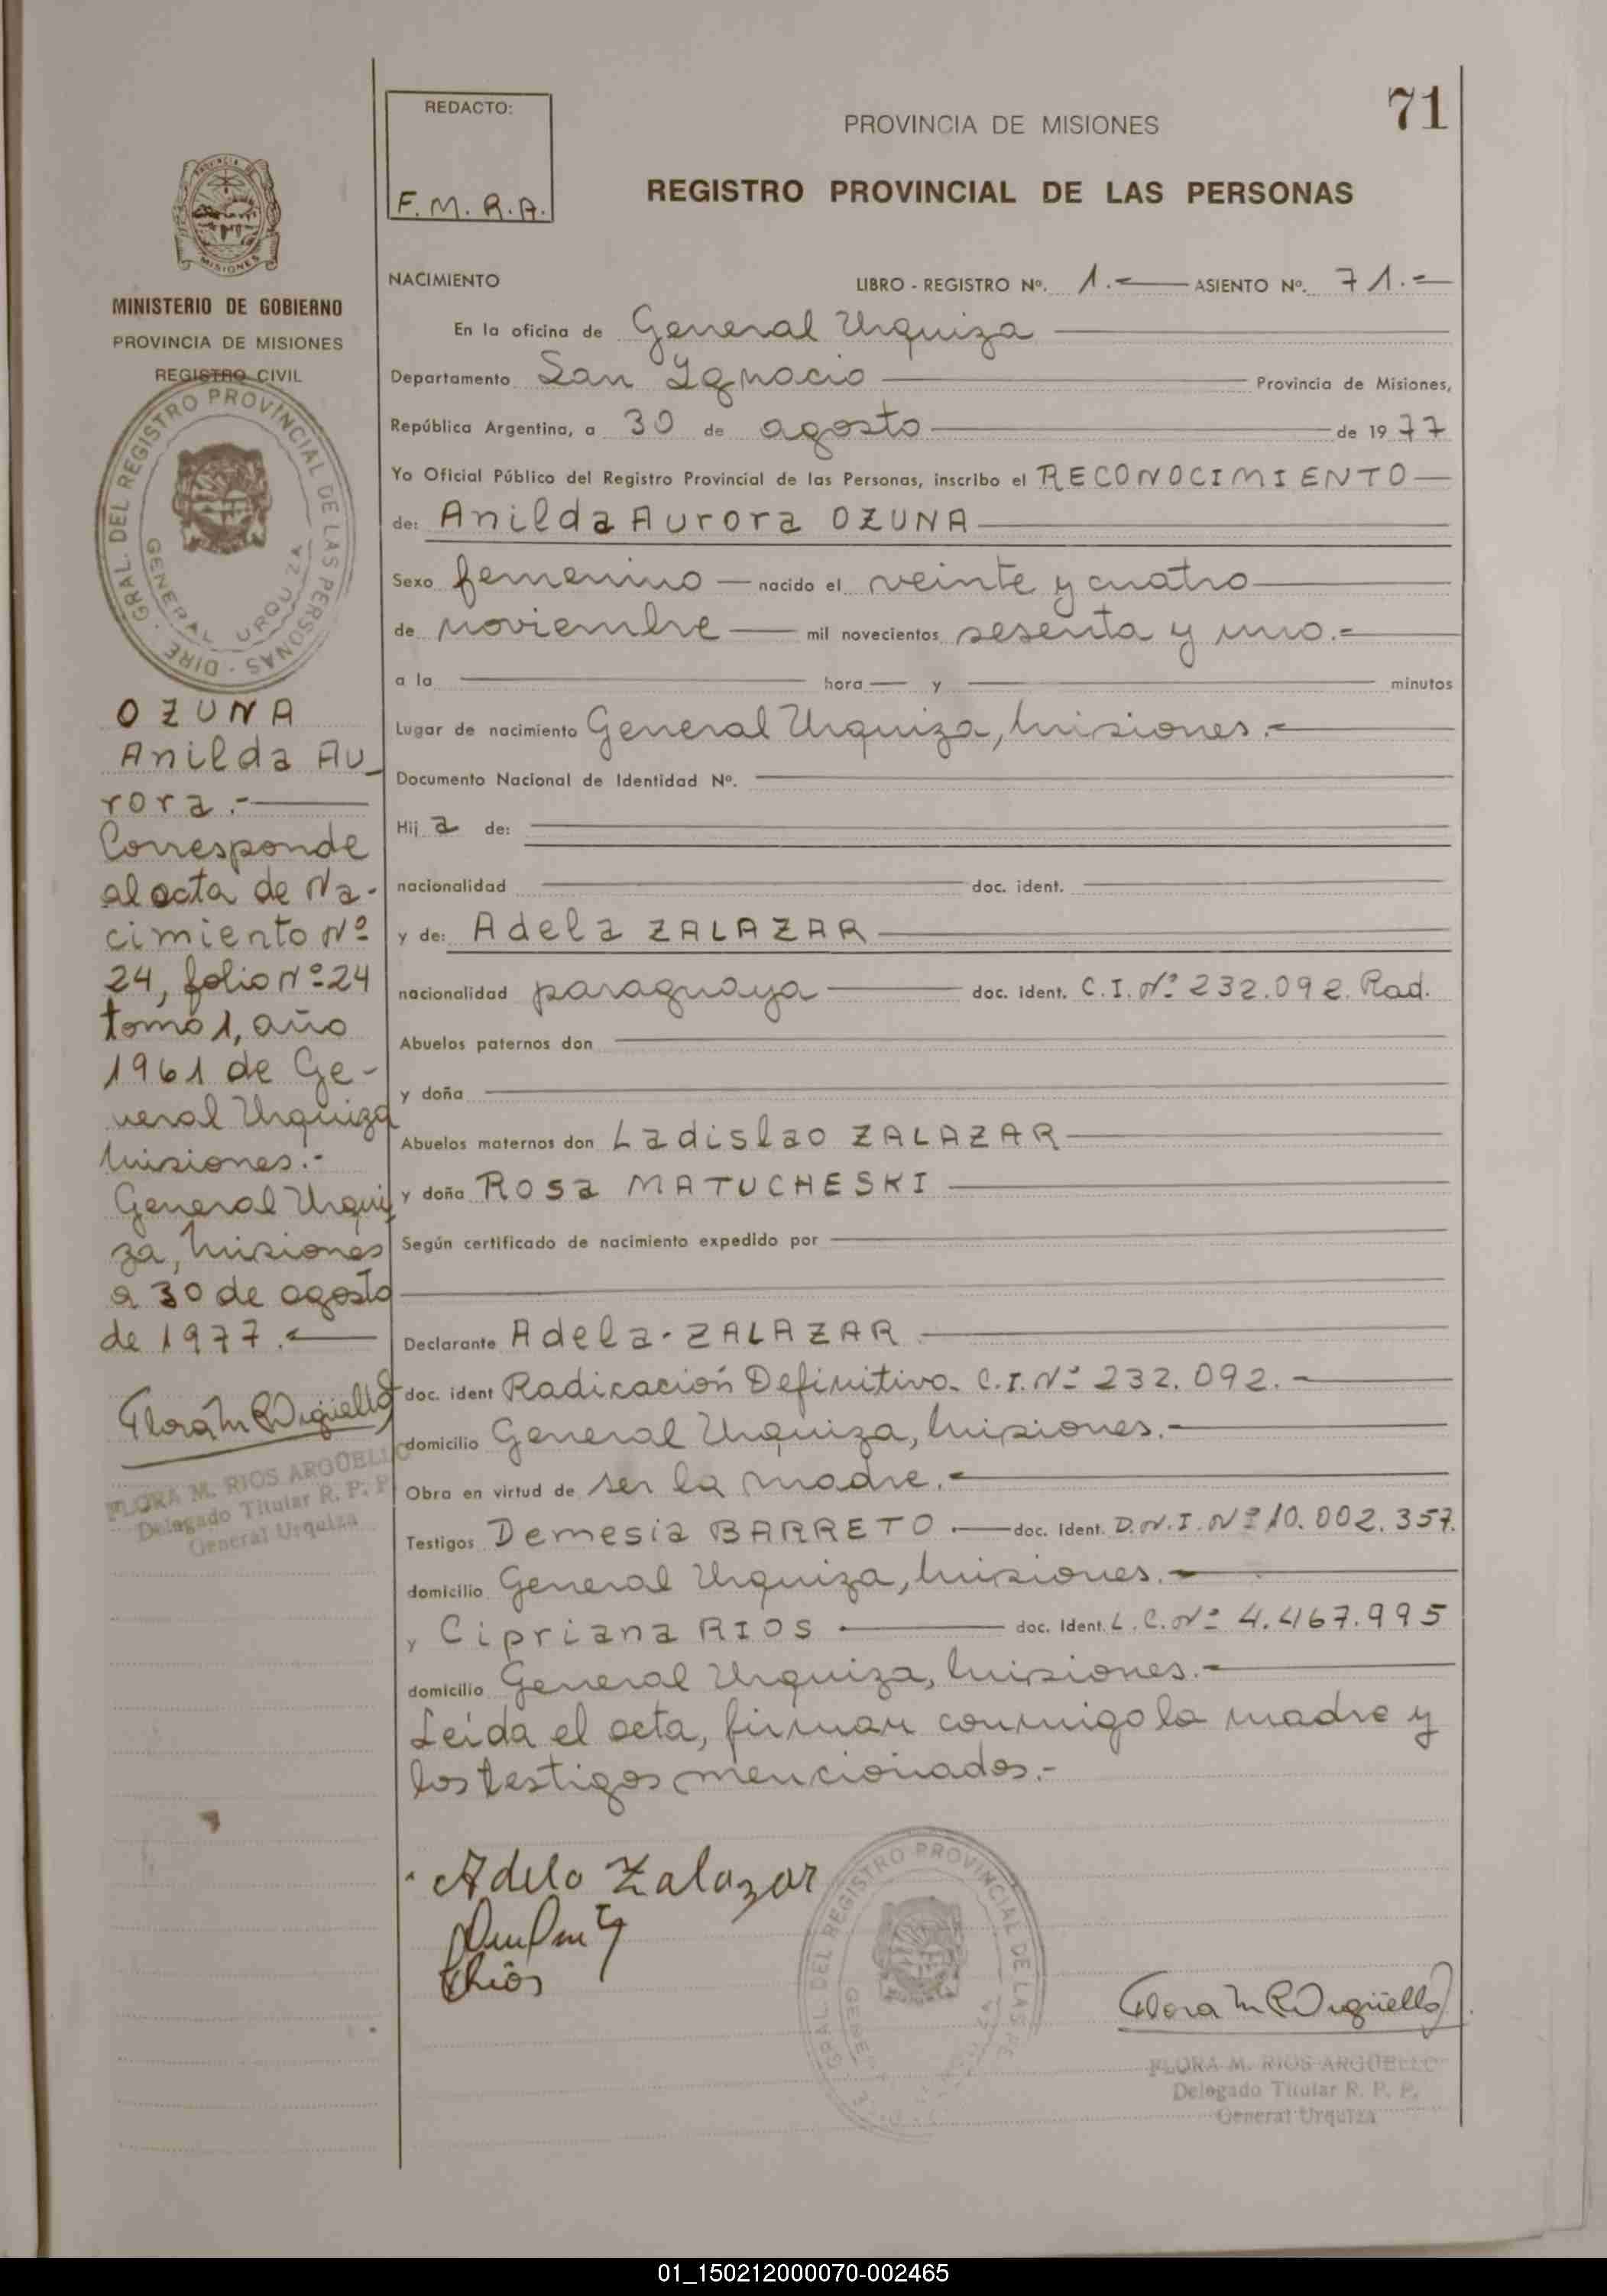 71
REDACTO:
F. M. R. A.
PROVINCIA DE MISIONES
REGISTRO PROVINCIAL DE LAS PERSONAS
PROVINCIA DE
MISIONES
MINISTERIO DE GOBIERNO
PROVINCIA DE MISIONES
REGISTRO CIVIL
DIRE. GRAL. DEL REGISTRO PROVINCIAL DE LAS PERSONAS
GENERAL URQUIZA
OZUNA
Anilda Au_
rora.-
Corresponde
al acta de Na-
cimiento Nº
24, folio Nº 24
tomo 1, año
1961 de Ge-
neral Urquiza
Misiones.-
General Urqui
za, Misiones
a 30 de agosto
de 1977.-
Flora M R Argüello
FLORA M. RIOS ARGÜELLO
Delegado Titular R. P. P.
General Urquiza
NACIMIENTO LIBRO - REGISTRO Nº. 1.- ASIENTO Nº. 71.-
En la oficina de General Urquiza
Departamento San Ignacio Provincia de Misiones,
República Argentina, a 30 de agosto de 1977
Yo Oficial Público del Registro Provincial de las Personas, inscribo el RECONOCIMIENTO
de: Anilda Aurora OZUNA
Sexo femenino nacido el veinte y cuatro
de noviembre mil novecientos sesenta y uno.-
a la hora y minutos
Lugar de nacimiento General Urquiza, Misiones.-
Documento Nacional de Identidad Nº.
Hij a de:
nacionalidad doc. ident.
y de: Adela ZALAZAR
nacionalidad paraguaya doc. ident. C.I. Nº 232.092. Rad.
Abuelos paternos don
y doña
Abuelos maternos don Ladislao ZALAZAR
y doña Rosa MATUCHESKI
Según certificado de nacimiento expedido por
Declarante Adela-ZALAZAR
doc. ident Radicación Definitiva. C.I. Nº 232.092.-
domicilio General Urquiza, Misiones.-
Obra en virtud de ser la madre.-
Testigos Demesia BARRETO.- doc. Ident. D.N.I. Nº 10.002.357.
domicilio General Urquiza, Misiones.-
y Cipriana RIOS doc. Ident. L.C. Nº 4.467.995
domicilio General Urquiza, Misiones.-
Leída el acta, firman conmigo la madre y
los testigos mencionados.-
Adela Zalazar
GRAL. DEL REGISTRO PROVINCIAL DE LAS PE
Flora M R Argüello
FLORA M. RIOS ARGÜELLO
Delegado Titular R. P. P.
General Urquiza
01_150212000070-002465